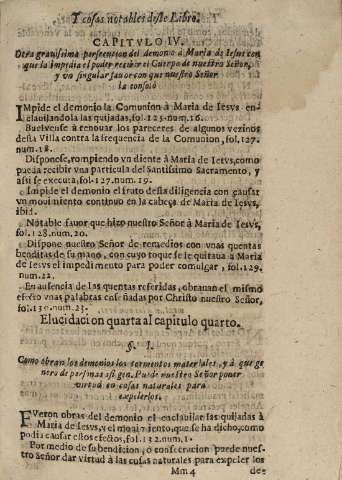 Y cosas notables deste Libro.
CAPITVLO IV.
Otra gravissima persecucion del demonio à Maria de Iesus con
que la impedia el poder recibir el Cuerpo de nuestro Señor,
y vn singular favor con que nuestro Señor
la consolò
IMpide el demonio la Comunion à Maria de Iesvs en-
clavijandola las quijadas, fol. 125. num. 16.
Buelvense à renovar los pareceres de algunos vezinos
desta Villa contra la frequencia de la Comunion, fol. 127.
num. 18.
Disponese, rompiendo vn diente à Maria de Iesvs, como
pueda recibir vna particula del Santissimo Sacramento, y
assi se executa, fol. 127. num. 19.
Impide el demonio el fruto desta diligencia con causar
vn movimiento continuo en la cabeça de Maria de Iesvs,
ibid.
Notable favor que hizo nuestro Señor à Maria de Iesvs,
fol. 128. num. 20.
Dispone nuestro Señor de remedios con vnas quentas
benditas de su mano, con cuyo toque se le quitava à Maria
de Iesvs el impedimento para poder comulgar, fol. 129.
num. 22.
En ausencia de las quentas referidas, obravan el mismo
efecto vnas palabras enseñadas por Christo nuestro Señor,
fol. 130. num. 23.
Elucidacion quarta al capitulo quarto.
§. I.
Como obran los demonios los tormentos materiales, y à que ge-
nero de personas afligen. Puede nuestro Señor poner
virtud en cosas naturales para
expelerlos.
FVeron obras del demonio el enclavijar las quijadas à
Maria de Iesvs, y el movimiento, que se ha dicho; como
podia causar estos efectos, fol. 132. num. 1.
Por medio de su bendicion, o consecracion puede nues-
tro Señor dar virtud à las cosas naturales para expeler los
Mm 4 de-